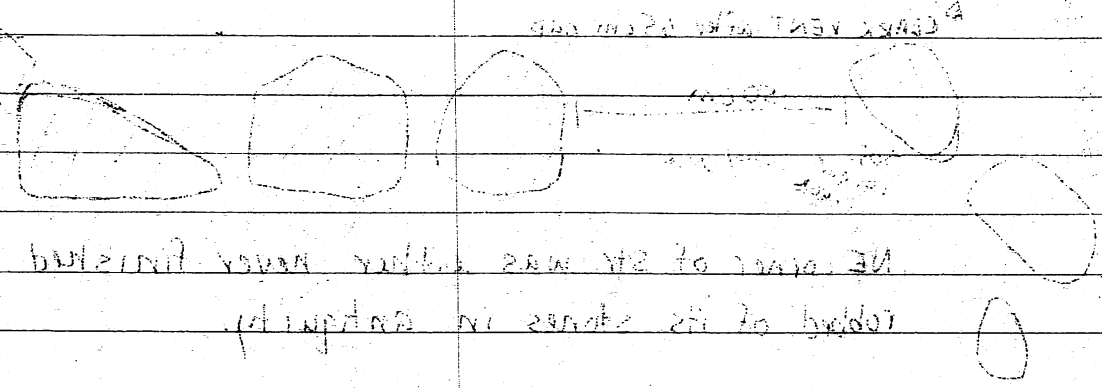 CLEAR VENT 65cm GAP
50cm
NE corner of str was either never finished
robbed of its stones in antiquity.